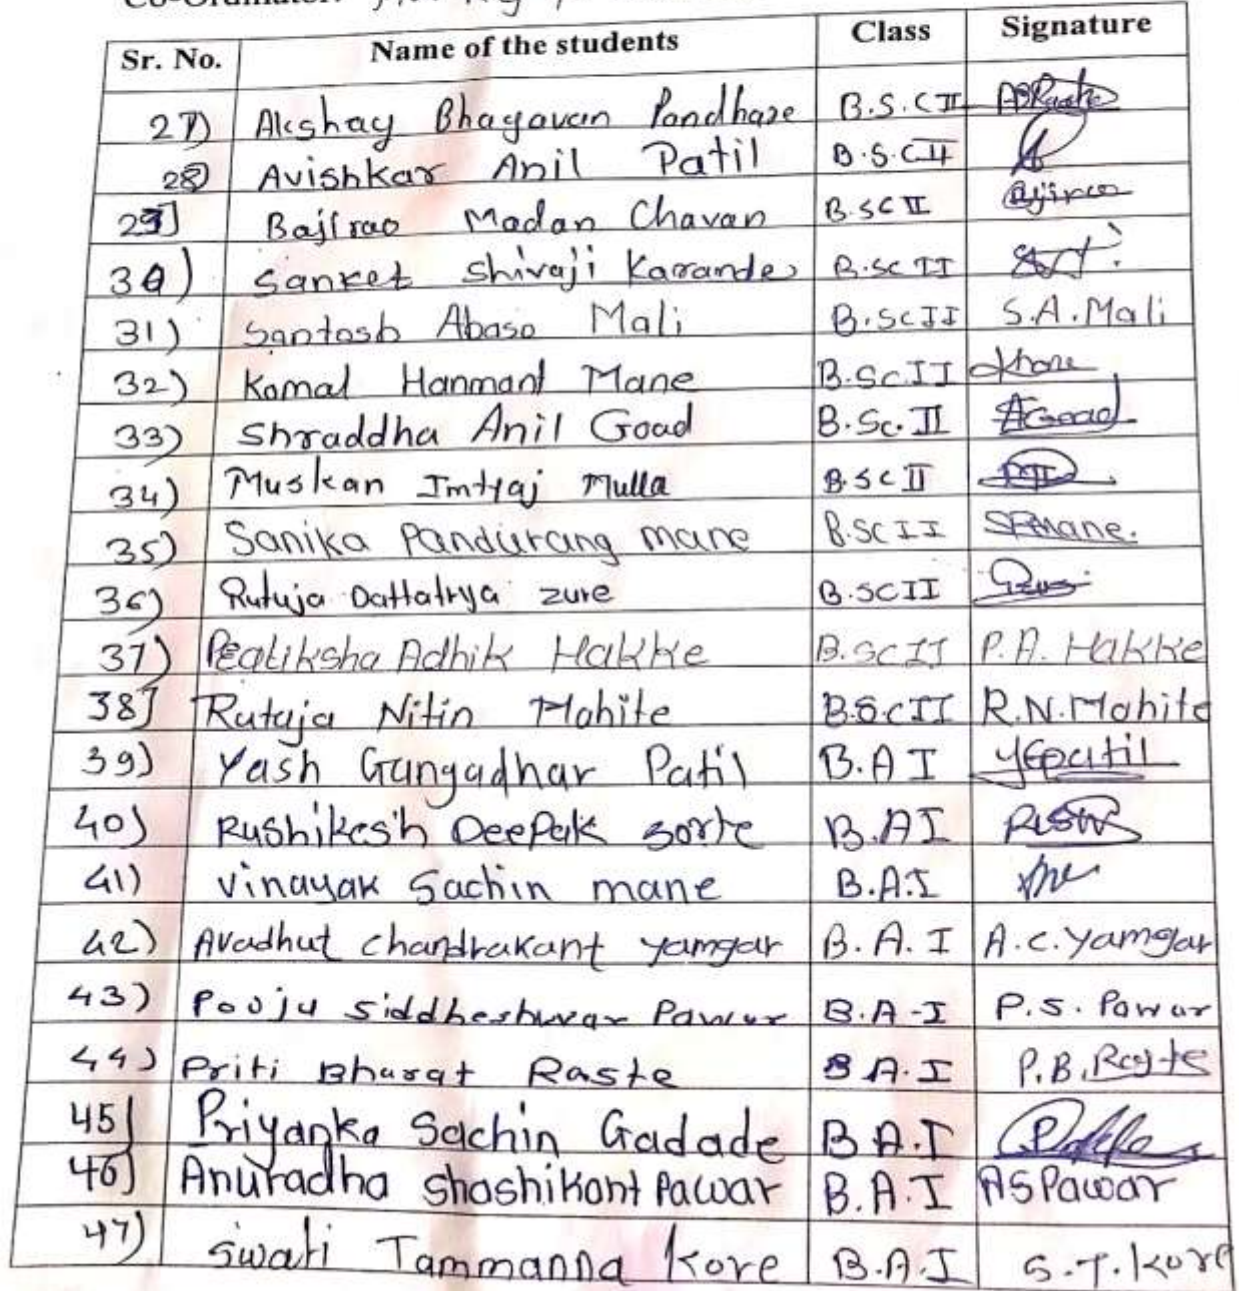 Co-Ordinator:
Sr. No. Name of the students Class Signature
27) Akshay Bhagavan Pandhare B.S.C II
28) Avishkar Anil Patil B.S.C II
29] Bajirao Madan Chavan B.SC II Bajirao
30) Sanket Shivaji Karande B.Sc II
31) Santosh Abaso Mali B.Sc II S.A.Mali
32) Komal Hanmant Mane B.Sc.II
33) Shraddha Anil Goad B.Sc.II AGoad
34) Muskan Imtyaj Mulla B.Sc II
35) Sanika Pandurang mane B.SC II SPMane.
36) Rutuja Dattatrya zure B.SCII
37) Pratiksha Adhik Hakke B.SC II P.A. Hakke
38] Rutuja Nitin Mohite B.Sc II R.N.Mohite
39) Yash Gangadhar Patil B.A I YGpatil
40) Rushikesh Deepak Sorte B.A I
41) vinayak Sachin mane B.A.I
42) Avadhut chandrakant yamgar B.A. I A.C.Yamgar
43) Pooja siddheshwar Pawar B.A-I P.S. Pawar
44) Priti Bharat Raste B A.I P.B.Raste
45) Priyanka Sachin Gadade B A.I
46) Anuradha Shashikant Pawar B.A.I ASPawar
47) Swati Tammanna Kore B.A.I S.T.Kore